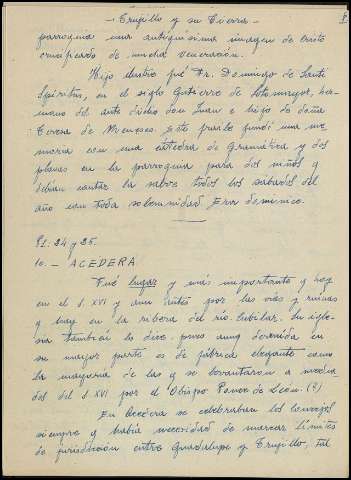 - Trujillo y su Tierra -
parroquia una antiquisima imagen de Cristo
crucificado de mucha veneración.
Hijo ilustre fué Fr. Domingo de Santi
Spiritus, en el siglo Gutierre de Sotomayor, her-
mano del ante dicho don Juan e hijo de doña
Teresa de Meneses. Este pueblo fundó una me-
moria con una catedra de Gramática y dos
plazas en la parroquia para dos niños y
debían cantar la salve todos los sábados del
año con toda solemnidad. Era dominico.
P. 24 y 25.
10. - ACEDERA
Fué lugar y más importante y hoy
en el s. XVI y aun antes por las vias y ruinas
y hay en la ribera del río Cubilar. Su igle-
sia también lo dice, pues aunq derruida en
su mayor parte es de fábrica elegante como
la maquina de las y se levantaron a media
dos del s. XVI por el Obispo Ponce de León. (?)
En Acedera se celebraban los Concejos
siempre y había necesidad de marcar límites
de jurisdicción entre Guadalupe y Trujillo, tal